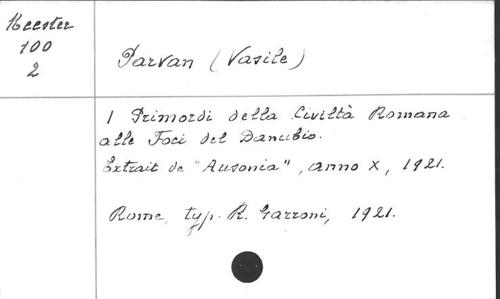 Meester
100
2
Parvan (Vasile)
I Primordi della Civiltà Romana
alle Foci del Danubio.
Extrait de "Ausonia", anno X, 1921.
Rome, typ. R. Garroni, 1921.